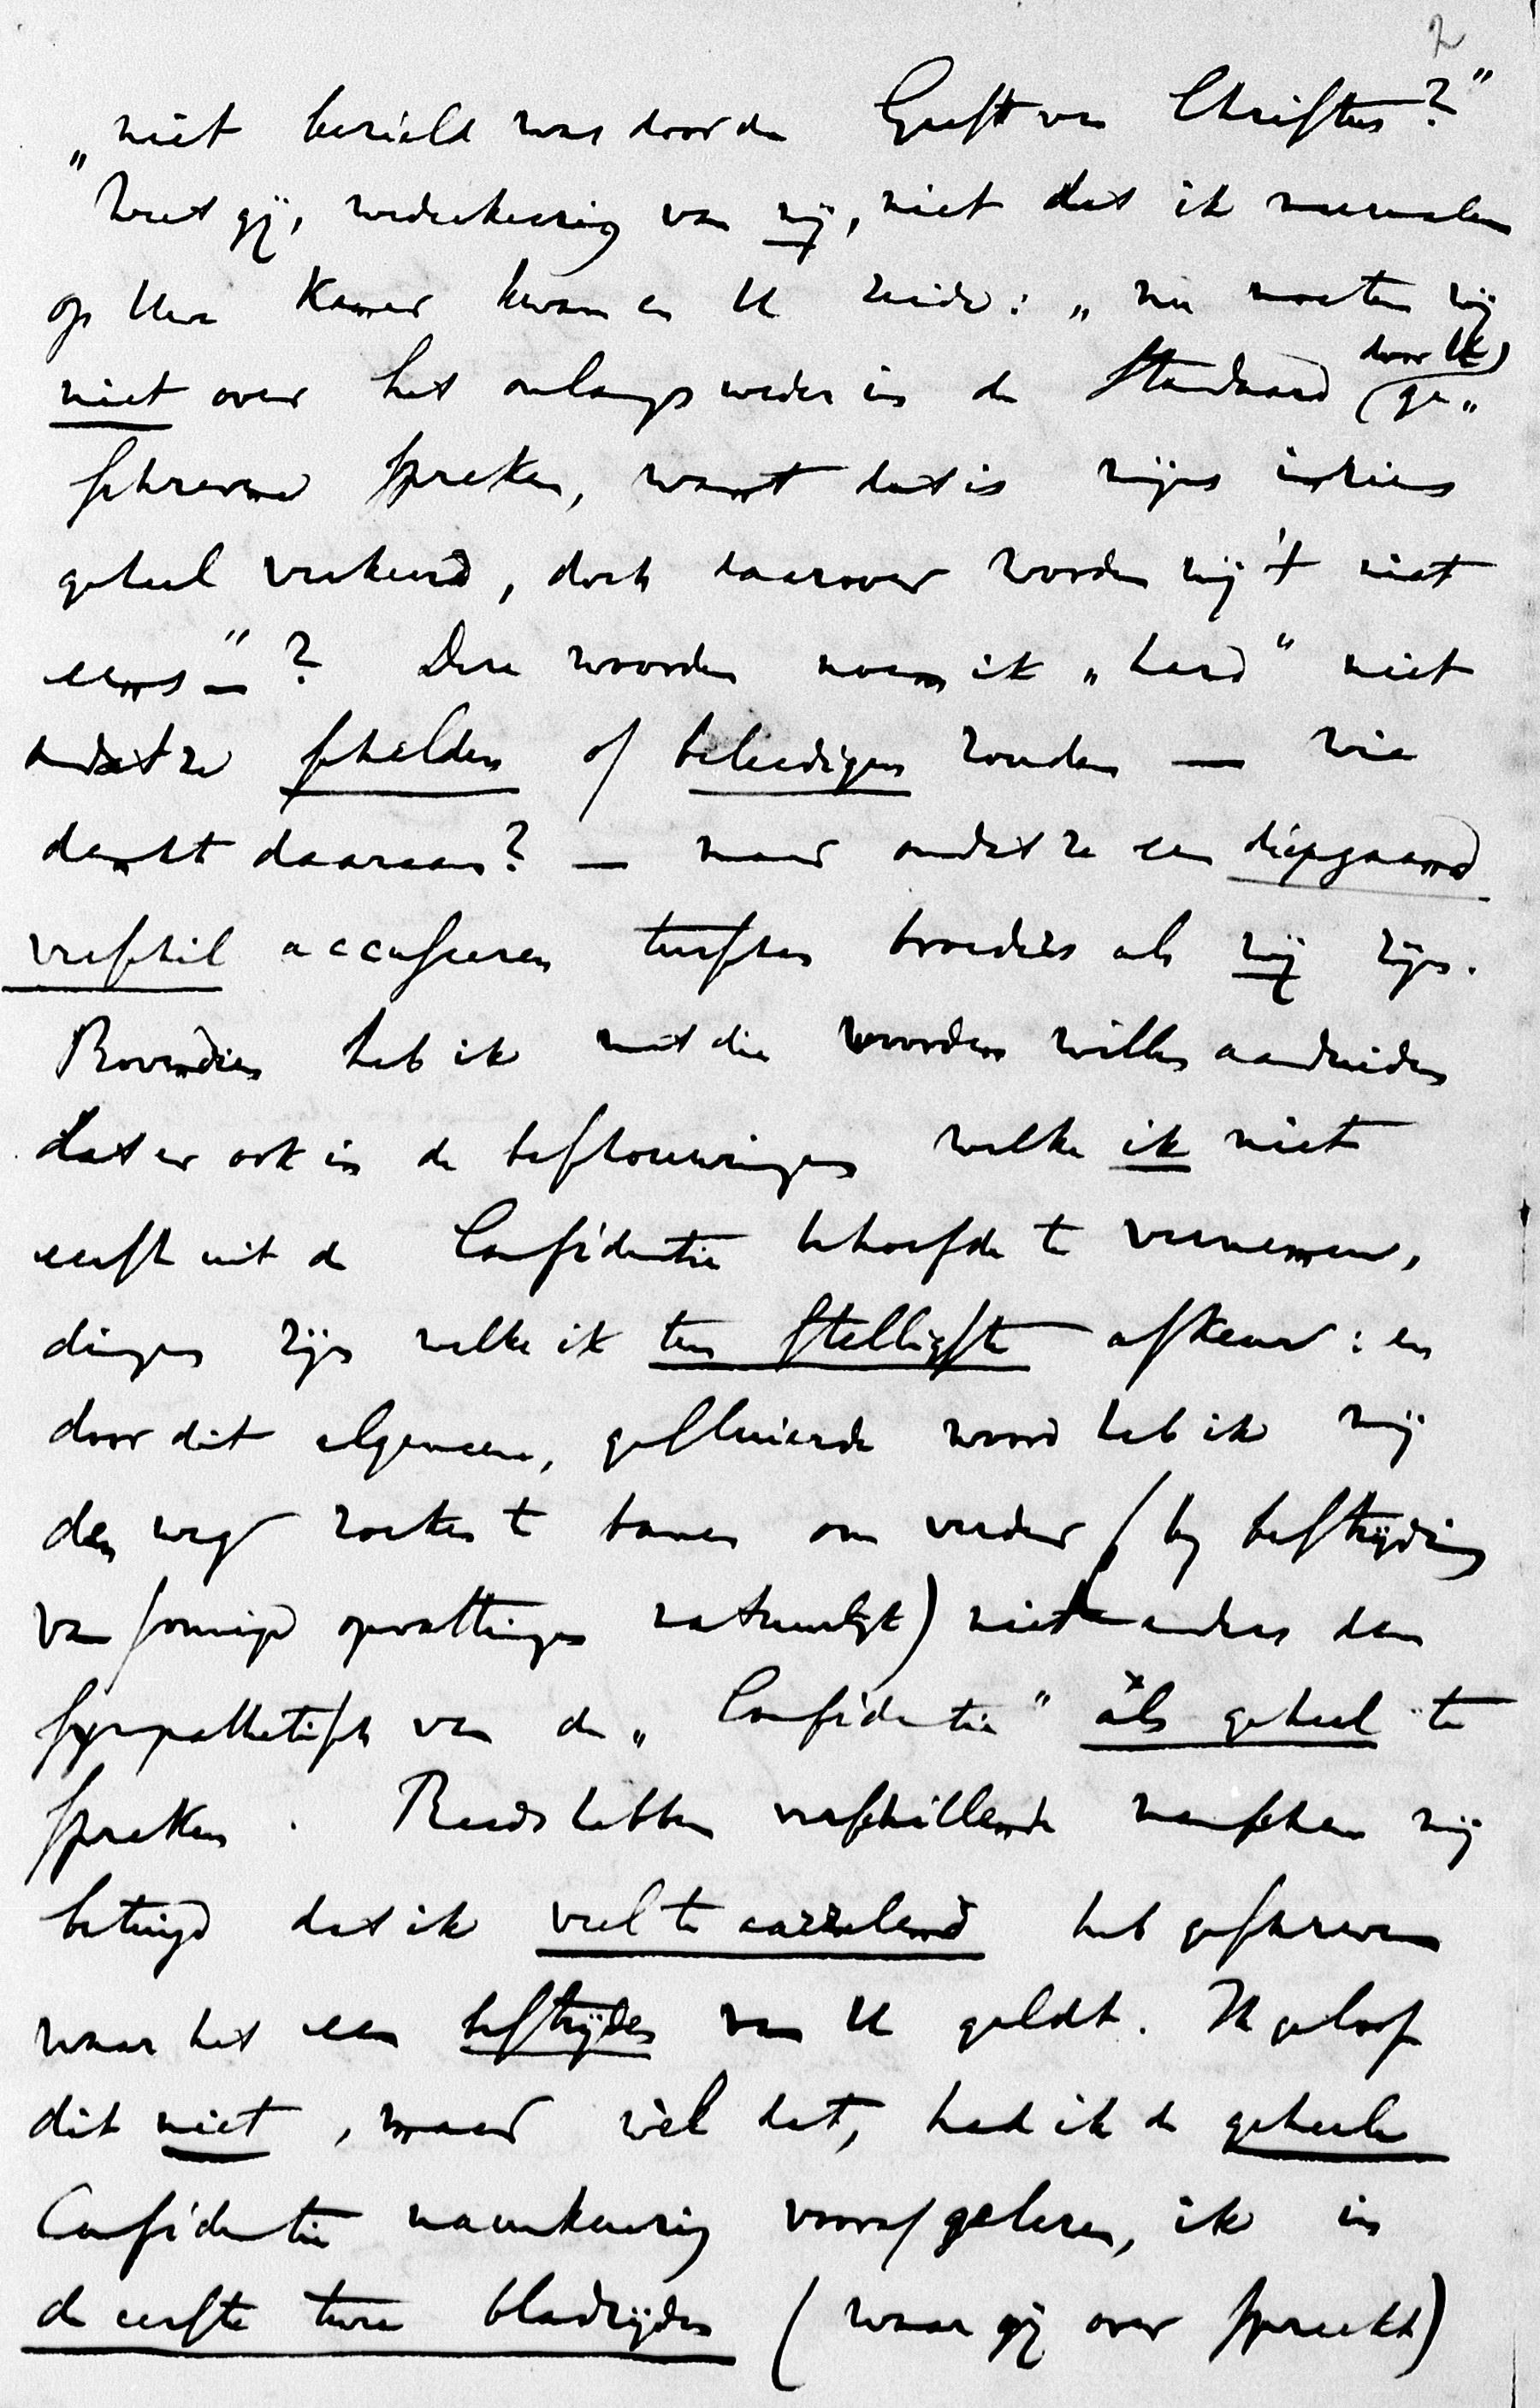 2
„niet bezield was door den Geest van Christus?”
Weet gij, wederkeerig van mij, niet dat ik meermalen
op Uwe kamer kwam en U zeide: „nu moeten wij
niet over het onlangs weder in de Standaard (door U) ge„
schrevene spreken, want dat is mijns inziens
geheel verkeerd, doch daarover worden wij 't niet
eens”—? Deze woorden noem ik „hard” niet
omdat ze schelden of beleedigen zouden — wie
denkt daaraan? — maar omdat ze een diepgaand
verschil accuseeren tusschen broeders als wij zijn.
Bovendien heb ik met die woorden willen aanduiden
dat er ook in de beschouwingen welke ik niet
eerst uit de Confidentie behoefde te vernemen,
dingen zijn welke ik ten stelligste afkeur: en
door dit algemeene, gesluierde woord heb ik mij
den weg zoeken te banen om verder (bij bestrijding
van sommige opvattingen natuurlijk) niet anders dan
sympathetisch van de „Confidentie” als geheel te
spreken. Reeds hebben verschillende menschen mij
betuigd dat ik veel te aarzelend heb geschreven
waar het een bestrijden van U geldt. Ik geloof
dit niet, maar wèl dat, had ik de geheele
Confidentie naauwkeurig vooraf gelezen, ik in
de eerste twee bladzijden (waar gij over spreekt)